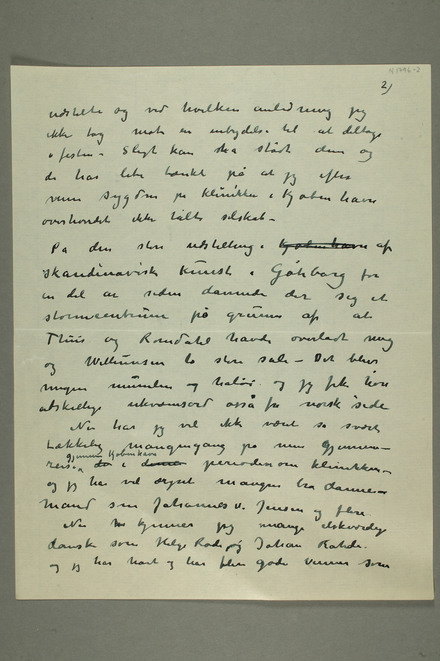 N 1796-2
2)
udstillede og ved hvilken anledning jeg
ikke tog mod en indbydelse til at deltage
i festen – Sligt kan ska stødt dem og
de har lidet tænkt på at jeg efter
min sygdom på klinikken i Kjøbenhavn
overhovedet ikke tålte selskab –
På den store udstilling i Kjøbenhavn af
skandinavisk Kunst i Gøteborg for
en del år siden dannede der sig et
stormcentrum på grund af at
Thiis og Romdahl havde overladt mig
og Willumsen to store sale – Det blev
megen mumlen og halløi og jeg fik høre
adskillige ukvemsord også fra norsk side
Nu har jeg vel ikke været så svært
tækkelig mangengang på min gjennem-
gjennem Kjøbenhavn
reise i perioden om klinikken –
og jeg har vel ærgret mangen bra danne-
mand som Johannes V. Jensen og flere
Nu kjenner jeg mange elskverdige
danske som Helge Rode og Johan Rohde.
og jeg har havt og har flere gode venner som